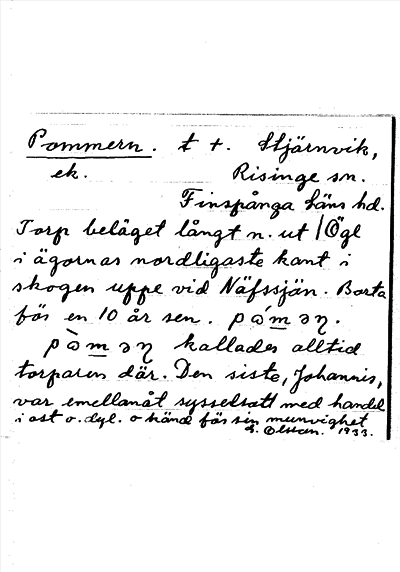 Pommern. t t. Stjärnvik,
ek. Risinge sn.
Finspånga läns hd.
Torp beläget långt n. ut / Ögl
i ägornas nordligaste kant i
skogen uppe vid Näfssjän. Borta
för en 10 år sen. pòməη.
pòməη kallades alltid
torparen där. Den siste, Johannis,
var emellanåt sysselsatt med handel
i ost o. dyl. o känd för sin munvighet
1933.